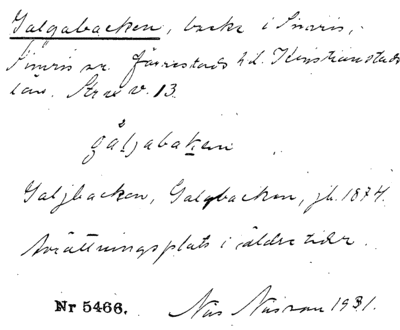 Galgabacken, backe i Simris,
Simris sn. Järrestads hd. Kristianstads
län. Strax v. 13.
gåljabaken
Galjbacken, Galgbacken, jb. 1874.
Avrättningsplats i äldre tider.
Nr 5466. Nils 1931.